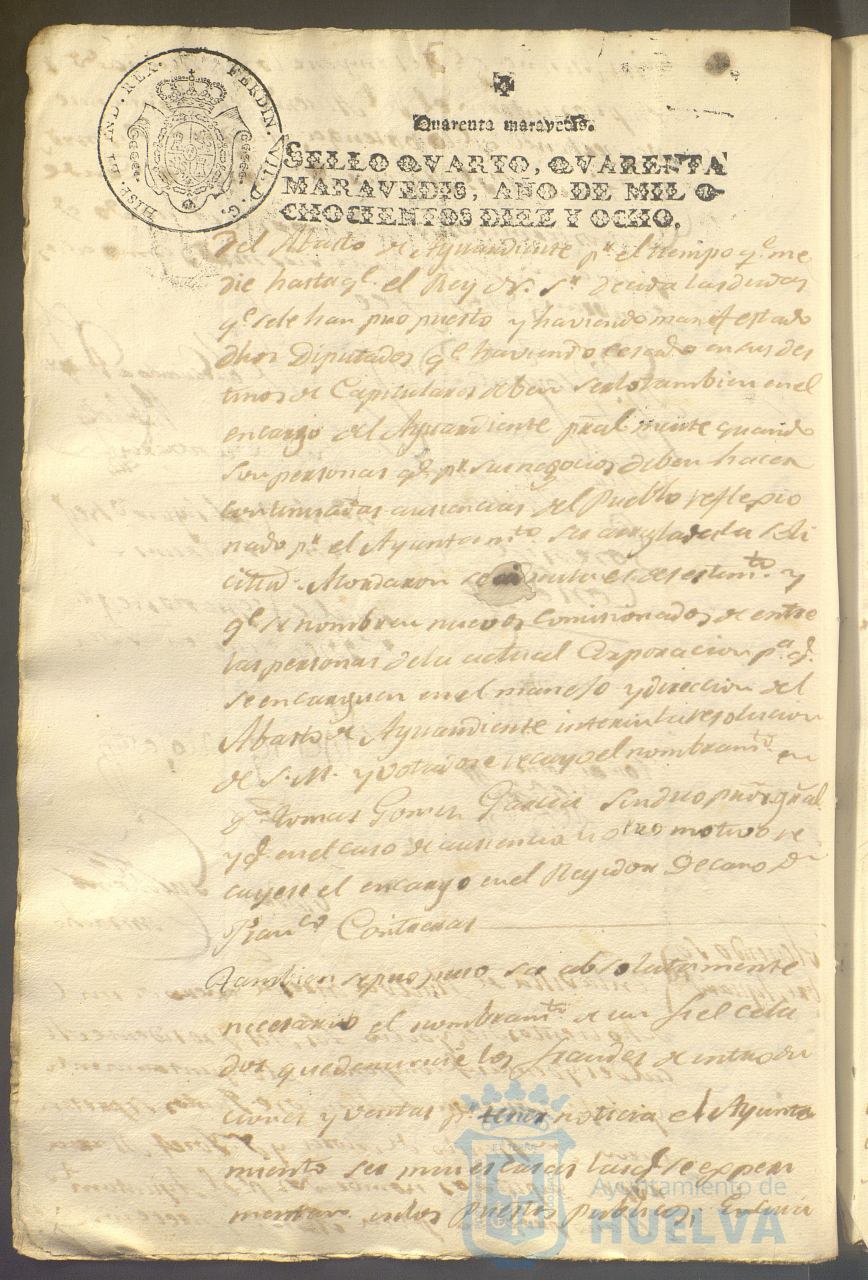 HISP. ET IND. REX. FERDIN. VII. D. G.
Quarenta maravedis.
SELLO QVARTO, QVARENTA
MARAVEDIS, AÑO DE MIL O-
CHOCIENTOS DIEZ Y OCHO.
del Abasto de Aguardiente pr. el tiempo qe. me
die hasta qe. el Rey N. Sr. decida las dudas
qe. se le han propuesto y haviendo manifestado
dhos Diputados qe. haviendo cesado en sus des
tinos de Capitulares deben serlo tambien en el
encargo del Aguardiente pral.mente quando
son personas qe. pr. sus negocios deben hacer
continuadas ausencias del Pueblo reflexio
nado pr. el Ayuntamto. ser arreglada la soli
citud. Acordaron y
qe. se nombren nuevos Comisionados de entre
las personas de la actual Corporacion pa. qe.
se encarguen en el manejo y direccion del
Abasto de Aguardiente interin la resolucion
de S. M. y votadose recayo el nombramto. en
Dn. Tomas Gomez Garcia Sindico gral
y qe. en el caso de ausencia u otro motivo re
cayese el encargo en el Regidor Decano Dn
Franco. Contreras
Tambien se propuso ser absolutamente
necesario el nombramto. de un fiel cela
dor que denuncie los fraudes de introdu
ciones y ventas pr. tener noticia el Ayunta
miento ser mui escasas las qe. se experi
mentan en los Puestos Publicos;
Ayuntamiento de
HUELVA